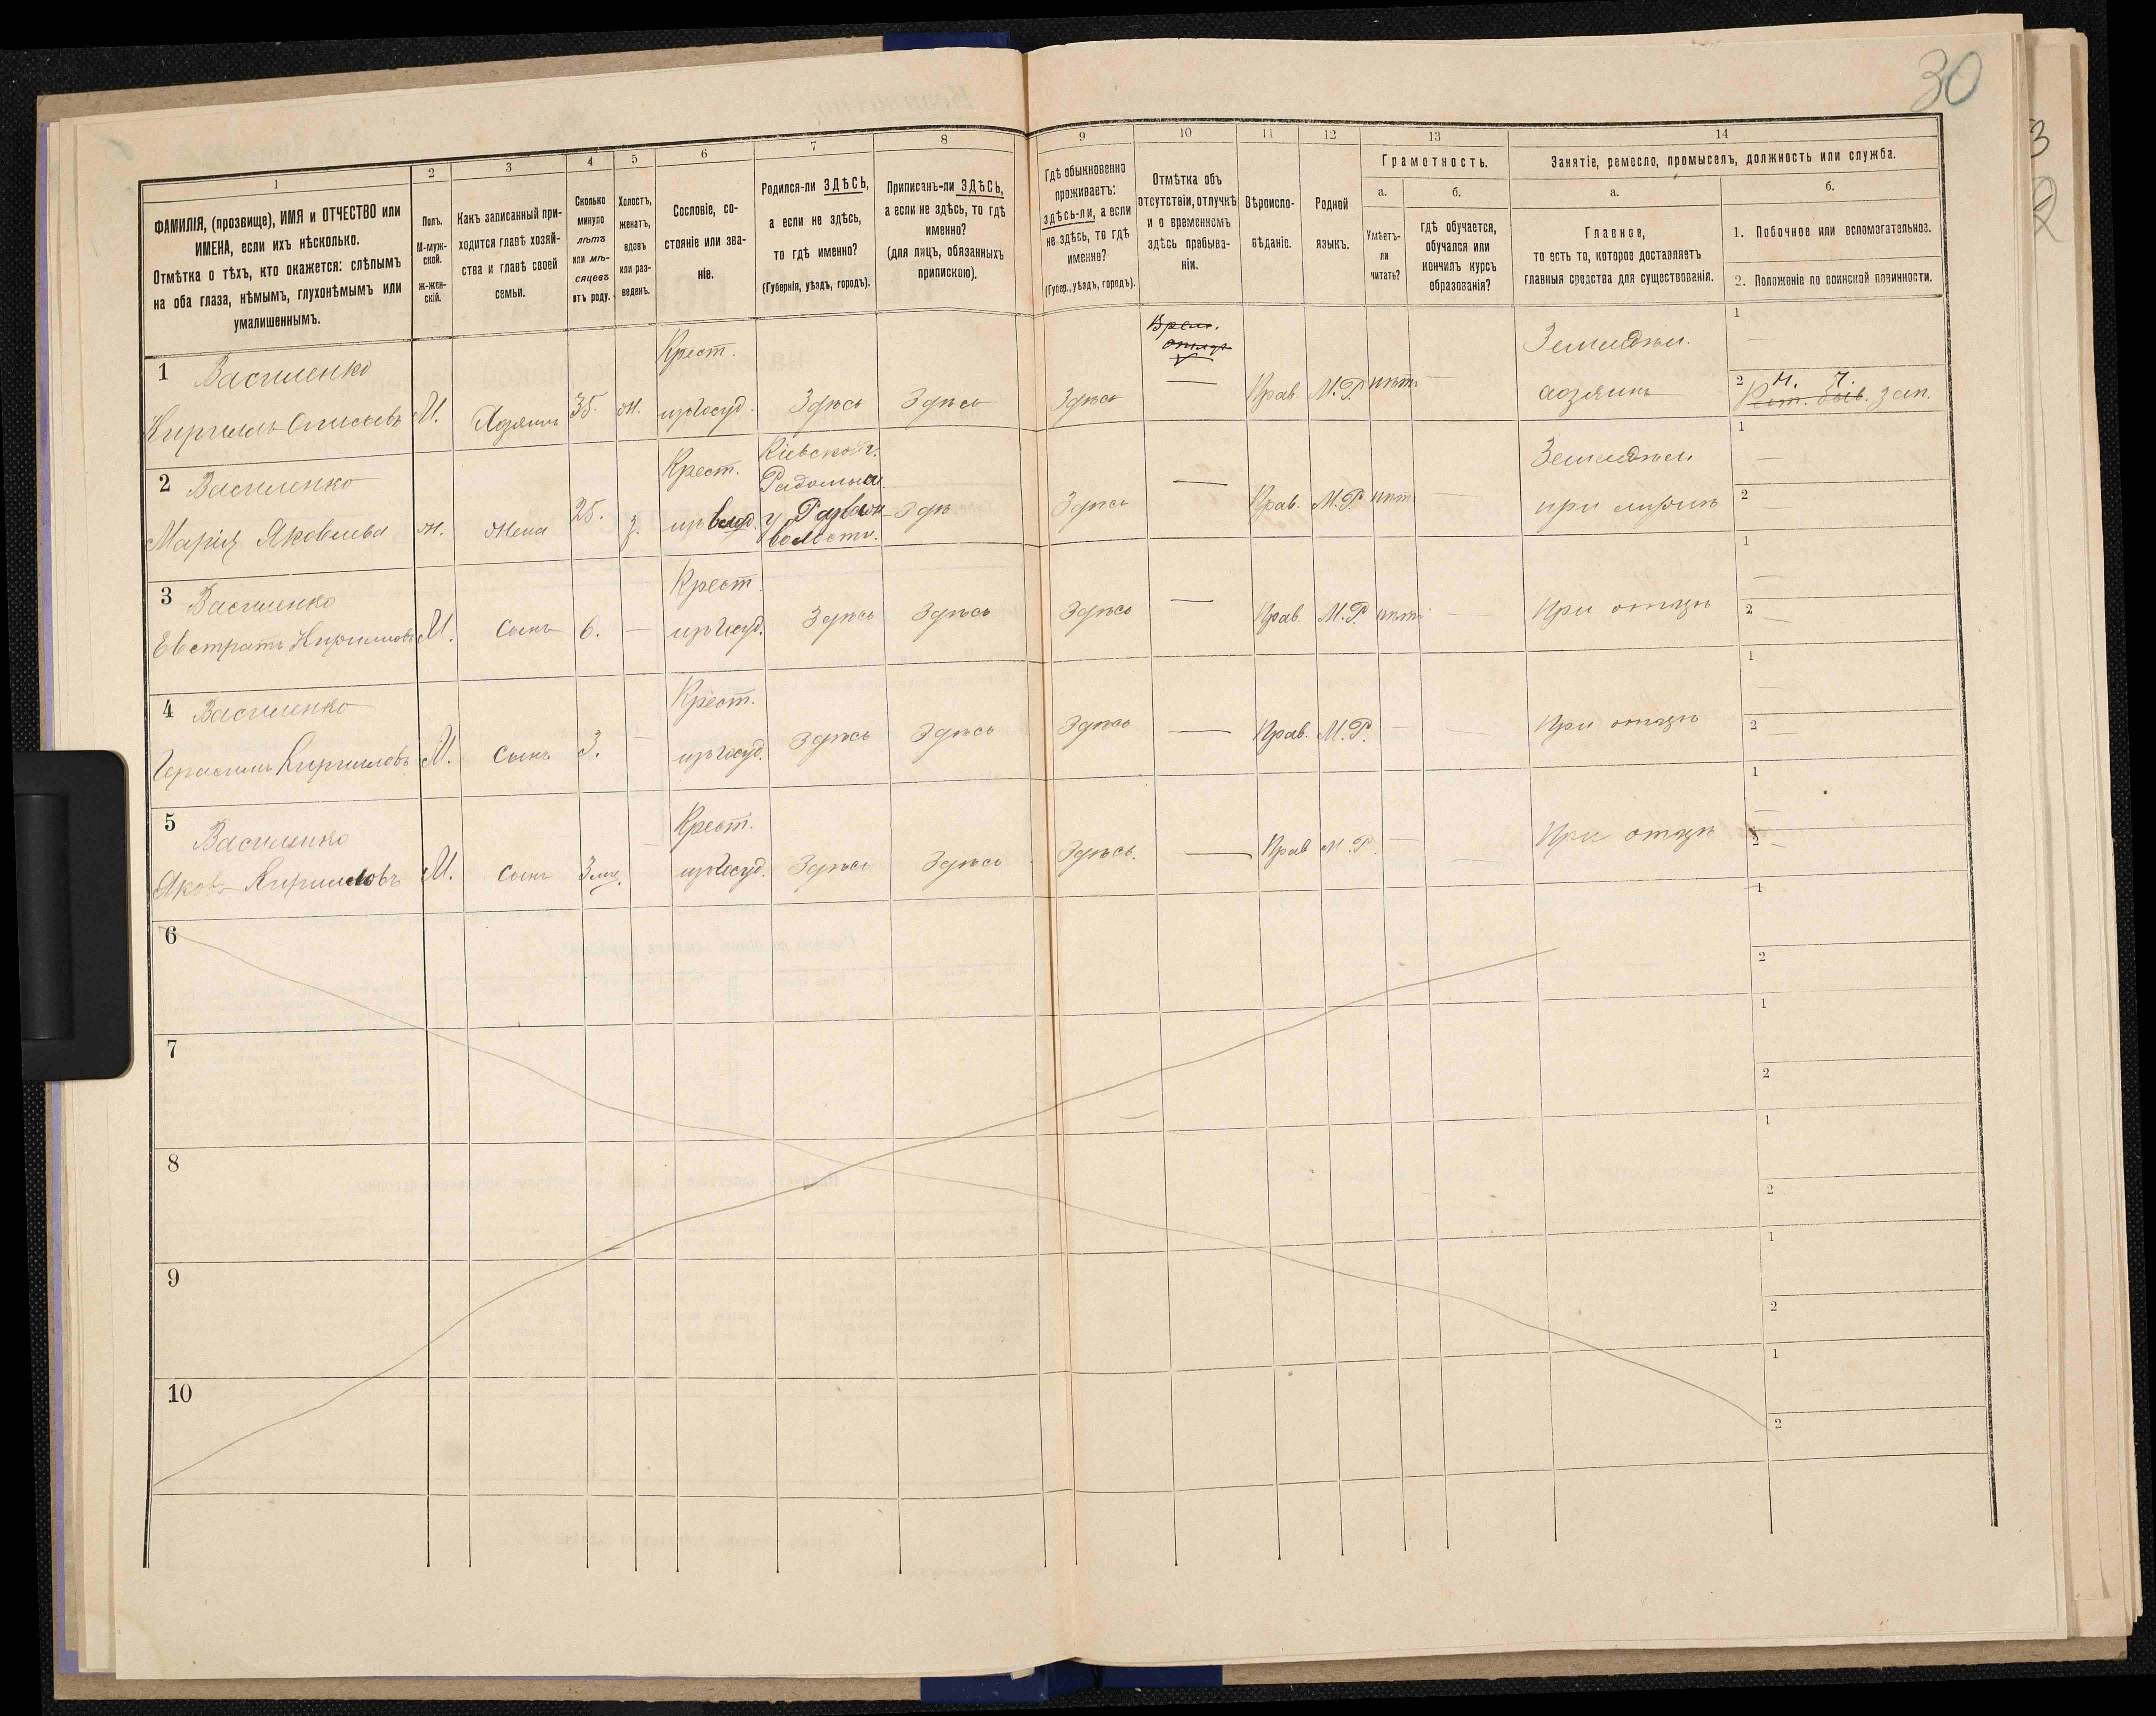 30
1
2
3
4
5
6
7
8
9
10
11
12
13
14
ФАМИЛІЯ, (прозвище), ИМЯ и ОТЧЕСТВО или
ИМЕНА, если ихъ нѣсколько.
Отмѣтка о тѣхъ, кто окажется: слѣпымъ
на оба глаза, нѣмымъ, глухонѣмымъ или
умалишеннымъ.
Полъ.
М-муж-
ской.
Ж-жен-
скій.
Какъ записанный при-
ходится главѣ хозяй-
ства и главѣ своей
семьи.
Сколько
минуло
лѣтъ
или мѣ-
сяцевъ
отъ роду.
Холостъ,
женатъ,
вдовъ
или раз-
веденъ.
Сословіе, со-
стояніе или зва-
ніе.
Родился-ли ЗДѢСЬ,
а если не здѣсь,
то гдѣ именно?
(Губернія, уѣздъ, городъ).
Приписанъ-ли ЗДѢСЬ,
а если не здѣсь, то гдѣ
именно?
(для лицъ, обязанныхъ
припискою).
Гдѣ обыкновенно
проживаетъ:
здѣсь-ли, а если
не здѣсь, то гдѣ
именно?
(Губер., уѣздъ, городъ).
Отмѣтка объ
отсутствіи, отлучкѣ
и о временномъ
здѣсь пребыва-
ніи.
Вѣроиспо-
вѣданіе.
Родной
языкъ.
Грамотность.
а.
б.
Умѣетъ-
ли
читать?
гдѣ обучается,
обучался или
кончилъ курсъ
образованія?
Занятіе, ремесло, промыселъ, должность или служба.
а.
б.
Главное,
то есть то, которое доставляетъ
главныя средства для существованія.
1. Побочное или вспомогательное.
2. Положеніе по воинской повинности.
1 Василенко Крест. Земледѣл. 1 —
Кириллъ М. Хозяинъ 35. ж. изъ госуд. Здѣсь Здѣсь Здѣсь — Прав. М.Р. нѣтъ — хозяинъ 2 зап.
2 Василенко Крест. Кіевской г. Земледѣл 1 —
Радомысл.
Марія Яковлева ж. жена 25. з. у. Здѣ Здѣсь — Прав. М.Р. нѣтъ — при мужѣ 2 —
волости.
3 Василенко Крест 1 —
Евстратъ Кирилловъ М. сынъ 6. — изъ госуд. Здѣсь Здѣсь Здѣсь — Прав. М.Р. нѣтъ — При отцѣ 2 —
4 Василенко Крест. 1 —
Герасимъ Кирилловъ М. сынъ 3. — изъ госуд. Здѣсь Здѣсь Здѣсь — Прав. М.Р. — — При отцѣ 2 —
5 Василенко Крест. 1 —
Яковъ Кирилловъ М. сынъ 3 мц. — изъ госуд. Здѣсь Здѣсь Здѣсь. — Прав М.Р. — — При отцѣ 2 —
6 1
2
7 1
2
8 1
2
9 1
2
10 1
2